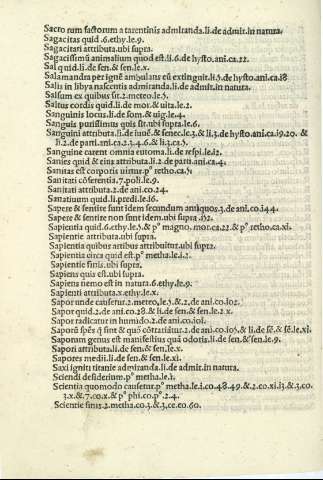 Sacro rum factorum a tarentinis admiranda.li.de admit.in natura.
Sagacitas quid.6.ethy.le.9.
Sagacitati attributa.ubi supra.
Sagacissimū animalium quod est.li.6.de hysto.ani.ca.22.
Sal quid.li.de sen.& sen.le.x.
Salamandra per ignē ambulans eū extinguit.li.5.de hysto.ani.ca.18
Salis in libya nascentis admiranda.li.de admit.in natura.
Salsum ex quibus sit.2.meteo.le.5.
Saltus cordis quid.li.de mor.& uita.le.2.
Sanguinis locus.li.de som.& uig.le.4.
Sanguis purissimus quis sit.ubi supra.le.6.
Sanguini attributa.li.de iuuē.& senec.le.3.& li.3.de hysto.ani.ca.19.20. &
li.2.de parti.ani.ca.2.3.4.6.& li.3.ca.5.
Sanguine carent omnia entoma.li.de respi.le.12.
Sanies quid & eius attributa.li.2.de parti.ani.ca.4.
Sanitas est corporis uirtus.pº retho.ca.5.
Sanitati cōserentia.7.poli.le.9.
Sanitati attributa.2.de ani.co.24.
Sanatiuum quid.li.predi.le.16.
Sapere & sentire sunt idem secundum antiquos.3.de ani.co.144.
Sapere & sentire non sunt idem.ubi supra.152.
Sapientia quid.6.ethy.le.5.& pº magno.mor.ca.22.& pº retho.ca.xi.
Sapientie attributa.ubi supra.
Sapientia quibus artibus attribuitur.ubi supra.
Sapientia circa quid est.pº metha.le.i.2.
Sapientie finis.ubi supra.
Sapiens quis est.ubi supra.
Sapiens nemo est in natura.6.ethy.le.9.
Sapienti attributa.x.ethy.le.x.
Sapor unde causetur.2.metreo.le.5.& 2.de ani.co.102.
Sapor quid.2.de ani.co.28.& li.de sen.& sen.le.2 x.
Sapor radicatur in humido.2.de ani.co.101.
Saporū spēs q̄ sint & quō cōttariitur.2.de ani.co.105.& li.de sē.& sē.le.xi.
Saporum genus est manifestius quā odoris.li.de sen.& sen.le.9.
Sapori attributa.li.de sen.& sen.le.x.
Sapores medii.li.de sen.& sen.le.xi.
Saxi igniti titanie admiranda.li.de admit.in natura.
Sciendi desiderium.pº metha.le.i.
Scientia quomodo causetur.pº metha.le.i.co.48.49.& 2.co.xi.13.& 3.co
3.x.& 7.co.x.& pº phi.co.pº.2.4.
Scientie finis.2.metha.co.3.& 3.ce.co.60.